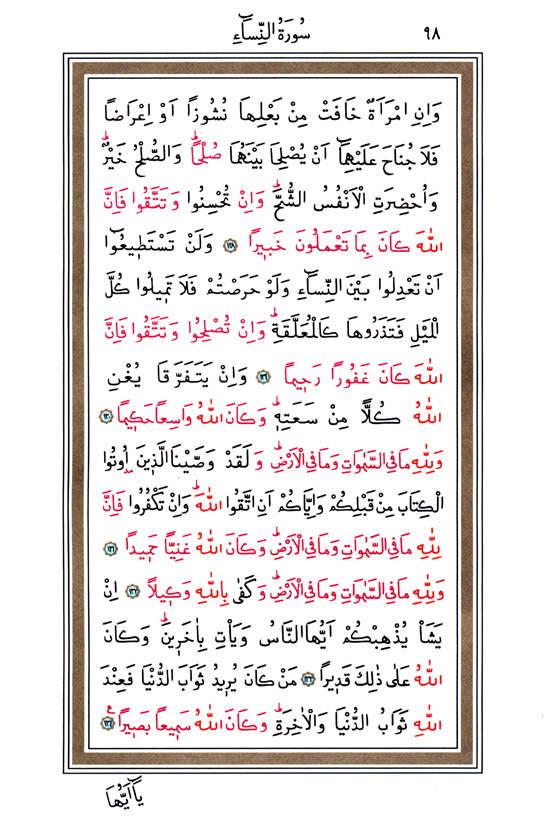 ٩٨ سُورَةُ النِّسَٓاءِ
وَاِنِ امْرَاَةٌ خَافَتْ مِنْ بَعْلِهَا نُشُوزًا اَوْ اِعْرَاضًا
فَلَا جُنَاحَ عَلَيْهِمَٓا اَنْ يُصْلِحَا بَيْنَهُمَا صُلْحًاۜ وَالصُّلْحُ خَيْرٌۜ
وَاُحْضِرَتِ الْاَنْفُسُ الشُّحَّۜ وَاِنْ تُحْسِنُوا وَتَتَّقُوا فَاِنَّ
اللّٰهَ كَانَ بِمَا تَعْمَلُونَ خَبٖيرًا ﴿١٢٨﴾ وَلَنْ تَسْتَطٖيعُٓوا
اَنْ تَعْدِلُوا بَيْنَ النِّسَٓاءِ وَلَوْ حَرَصْتُمْ فَلَا تَمٖيلُوا كُلَّ
الْمَيْلِ فَتَذَرُوهَا كَالْمُعَلَّقَةِۜ وَاِنْ تُصْلِحُوا وَتَتَّقُوا فَاِنَّ
اللّٰهَ كَانَ غَفُورًا رَحٖيمًا ﴿١٢٩﴾ وَاِنْ يَتَفَرَّقَا يُغْنِ
اللّٰهُ كُلًّا مِنْ سَعَتِهٖۜ وَكَانَ اللّٰهُ وَاسِعًا حَكٖيمًا ﴿١٣٠﴾
وَلِلّٰهِ مَا فِي السَّمٰوَاتِ وَمَا فِي الْاَرْضِۜ وَلَقَدْ وَصَّيْنَا الَّذٖينَ اُو۫تُوا
الْكِتَابَ مِنْ قَبْلِكُمْ وَاِيَّاكُمْ اَنِ اتَّقُوا اللّٰهَۜ وَاِنْ تَكْفُرُوا فَاِنَّ
لِلّٰهِ مَا فِي السَّمٰوَاتِ وَمَا فِي الْاَرْضِۜ وَكَانَ اللّٰهُ غَنِيًّا حَمٖيدًا ﴿١٣١﴾
وَلِلّٰهِ مَا فِي السَّمٰوَاتِ وَمَا فِي الْاَرْضِۜ وَكَفٰى بِاللّٰهِ وَكٖيلًا ﴿١٣٢﴾ اِنْ
يَشَأْ يُذْهِبْكُمْ اَيُّهَا النَّاسُ وَيَأْتِ بِاٰخَرٖينَۜ وَكَانَ
اللّٰهُ عَلٰى ذٰلِكَ قَدٖيرًا ﴿١٣٣﴾ مَنْ كَانَ يُرٖيدُ ثَوَابَ الدُّنْيَا فَعِنْدَ
اللّٰهِ ثَوَابُ الدُّنْيَا وَالْاٰخِرَةِۜ وَكَانَ اللّٰهُ سَمٖيعًا بَصٖيرًاࣖ ﴿١٣٤﴾
يَٓا اَيُّهَا